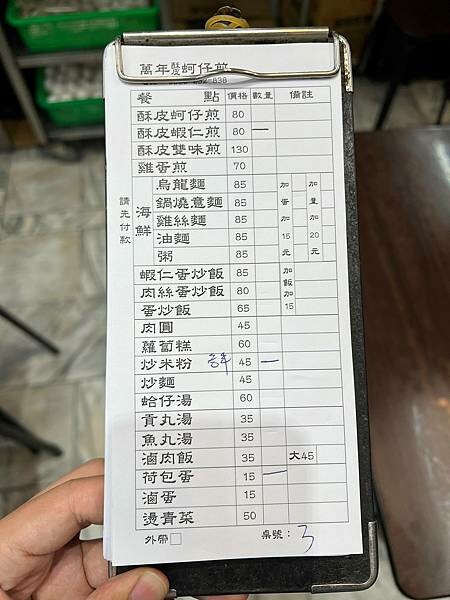 萬年酥皮蚵仔煎
餐 點 價格 數量 備註
酥皮蚵仔煎 80
酥皮蝦仁煎 80 一
酥皮雙味煎 130
雞蛋煎 70
請先付款
海鮮
烏龍麵 85
鍋燒意麵 85
雞絲麵 85
油麵 85
粥 85
加蛋15元
加量20元
蝦仁蛋炒飯 85
肉絲蛋炒飯 80
蛋炒飯 65
加飯加15
肉圓 45
蘿蔔糕 60
炒米粉 45 一
炒麵 45
蛤仔湯 60
貢丸湯 35
魚丸湯 35
滷肉飯 35 大45
荷包蛋 15 一
滷蛋 15
燙青菜 50
外帶□ 桌號：3